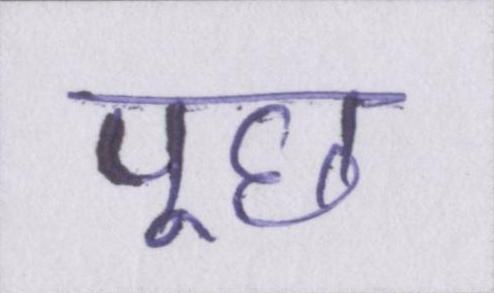 पूछ